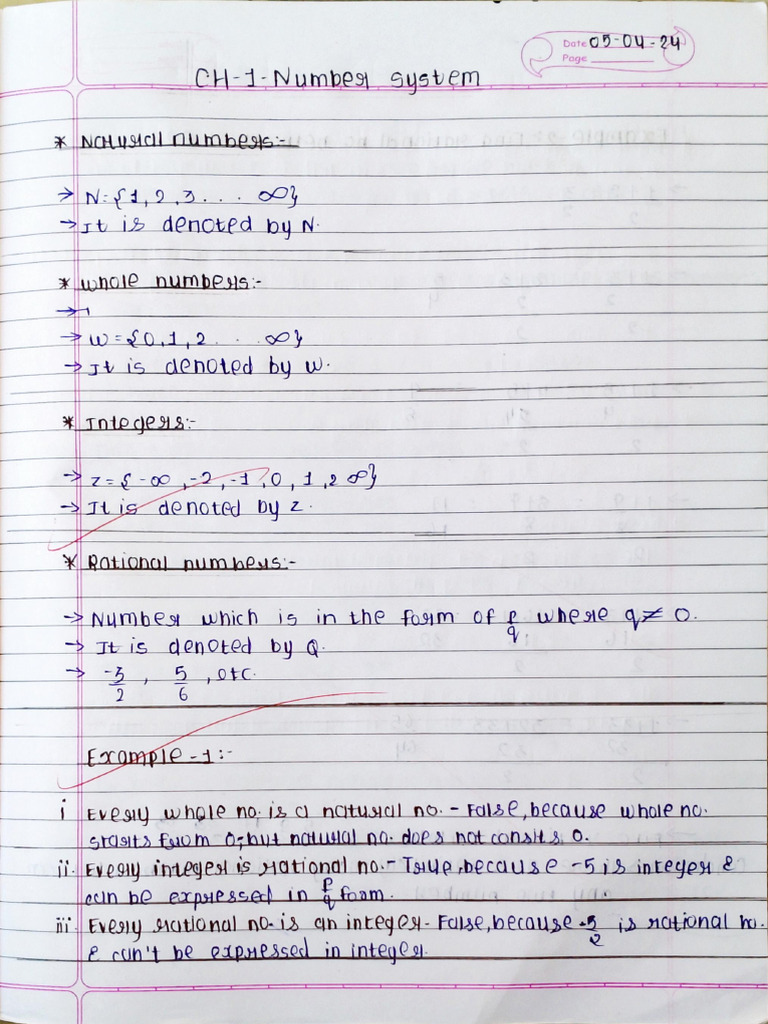 Date 05-04-24
Page
CH-1-Number system
* Natural numbers:-
→ N={1,2,3... ∞}
→ It is denoted by N.
* Whole numbers:-
→
→ W={0,1,2... ∞}
→ It is denoted by W.
* Integers:-
→ Z={-∞,-2,-1,0,1,2 ∞}
→ It is denoted by Z.
* Rational numbers:-
→ Number which is in the form of p/q where q≠0.
→ It is denoted by Q.
→ -3/2, 5/6, etc.
Example-1:-
i Every whole no. is a natural no. - False, because whole no.
starts from 0, but natural no. does not consits 0.
ii. Every integer is rational no. - True, because -5 is integer &
can be expressed in p/q form.
iii. Every rational no. is an integer - False, because -5/2 is rational no.
& can't be expressed in integer.